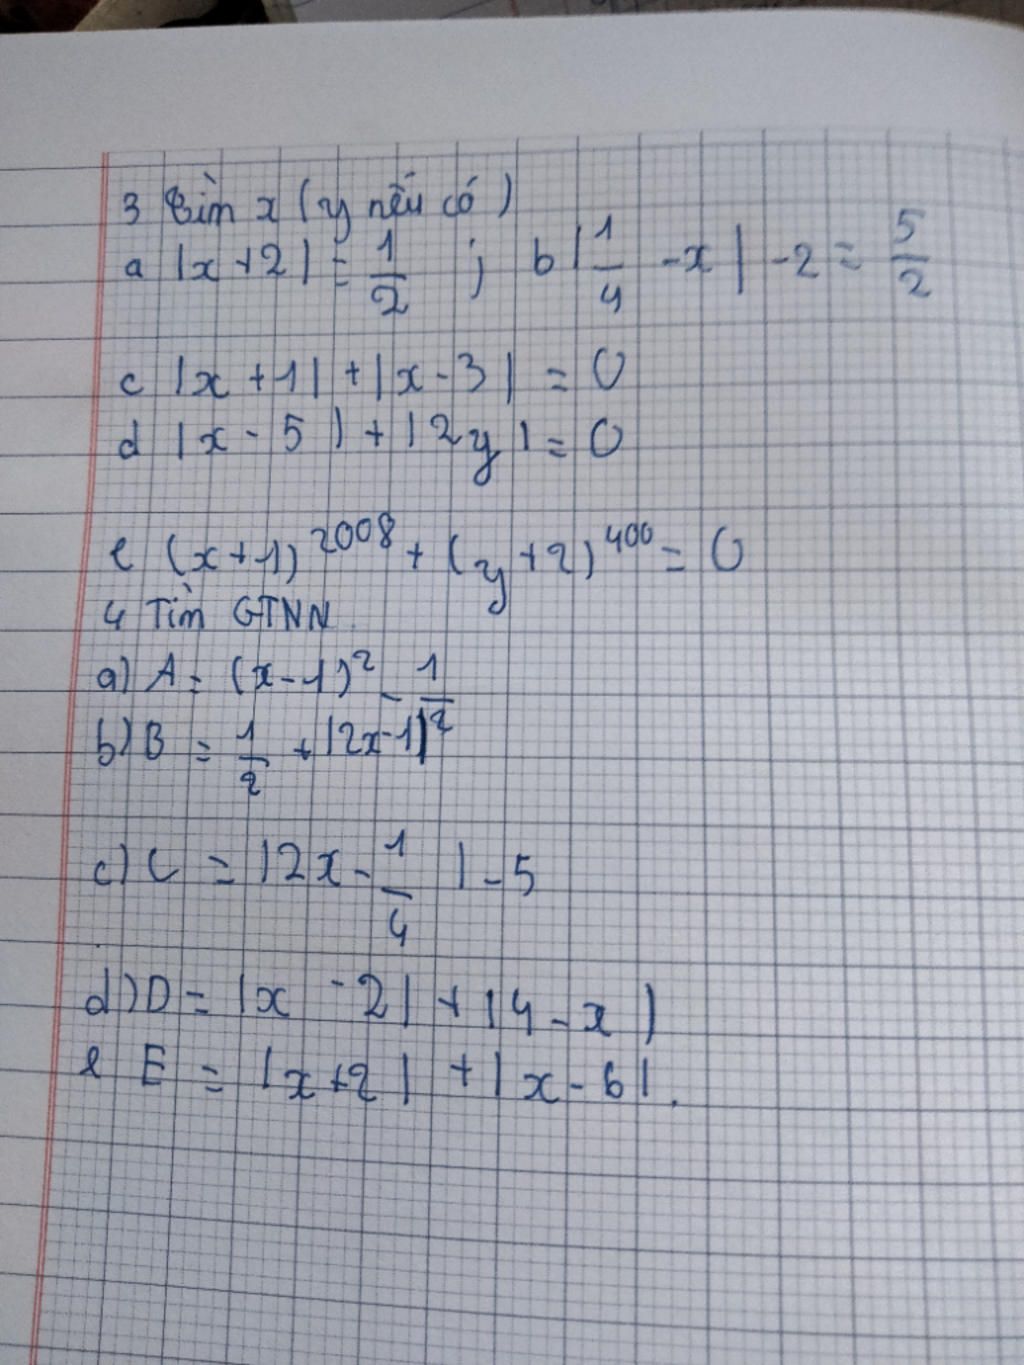 3 Tìm x (y nếu có)
a |x+2| = 1/2 ; b |1/4 - x| - 2 = 5/2
c |x+1| + |x-3| = 0
d |x-5| + |2y| = 0
e (x+1)^2008 + (y+2)^400 = 0
4 Tìm GTNN.
a) A = (x-1)^2 - 1/2
b) B = 1/2 + |2x-1|^2
c) C = |2x - 1/4| - 5
d) D = |x-2| + |4-x|
e E = |x+2| + |x-6|.